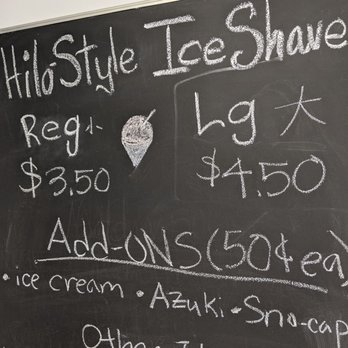 Hilo-Style Ice Shave
Reg 小 Lg 大
$3.50 $4.50
Add-ONS (50¢ ea)
• ice cream • Azuki • Sno-cap